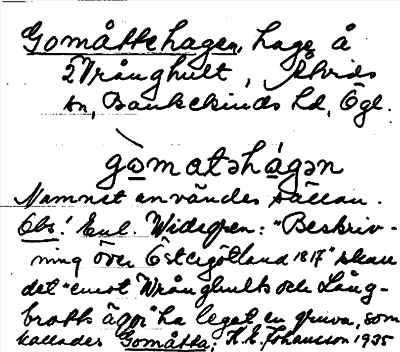 Gomåttehagen, hage å
Vrånghult, Åtvids
sn, Bankekinds hd, Ögl.
gɷmatəhágən
Namnet användes sällan.
Obs! Enl. Widegren: "Beskriv-
ning över Östergötland 1817" skall
det "emot Wrånghults och Lång-
brotts ägor" ha legat en gruva, som
kallades Gomåtta. K.G. Johansson 1935